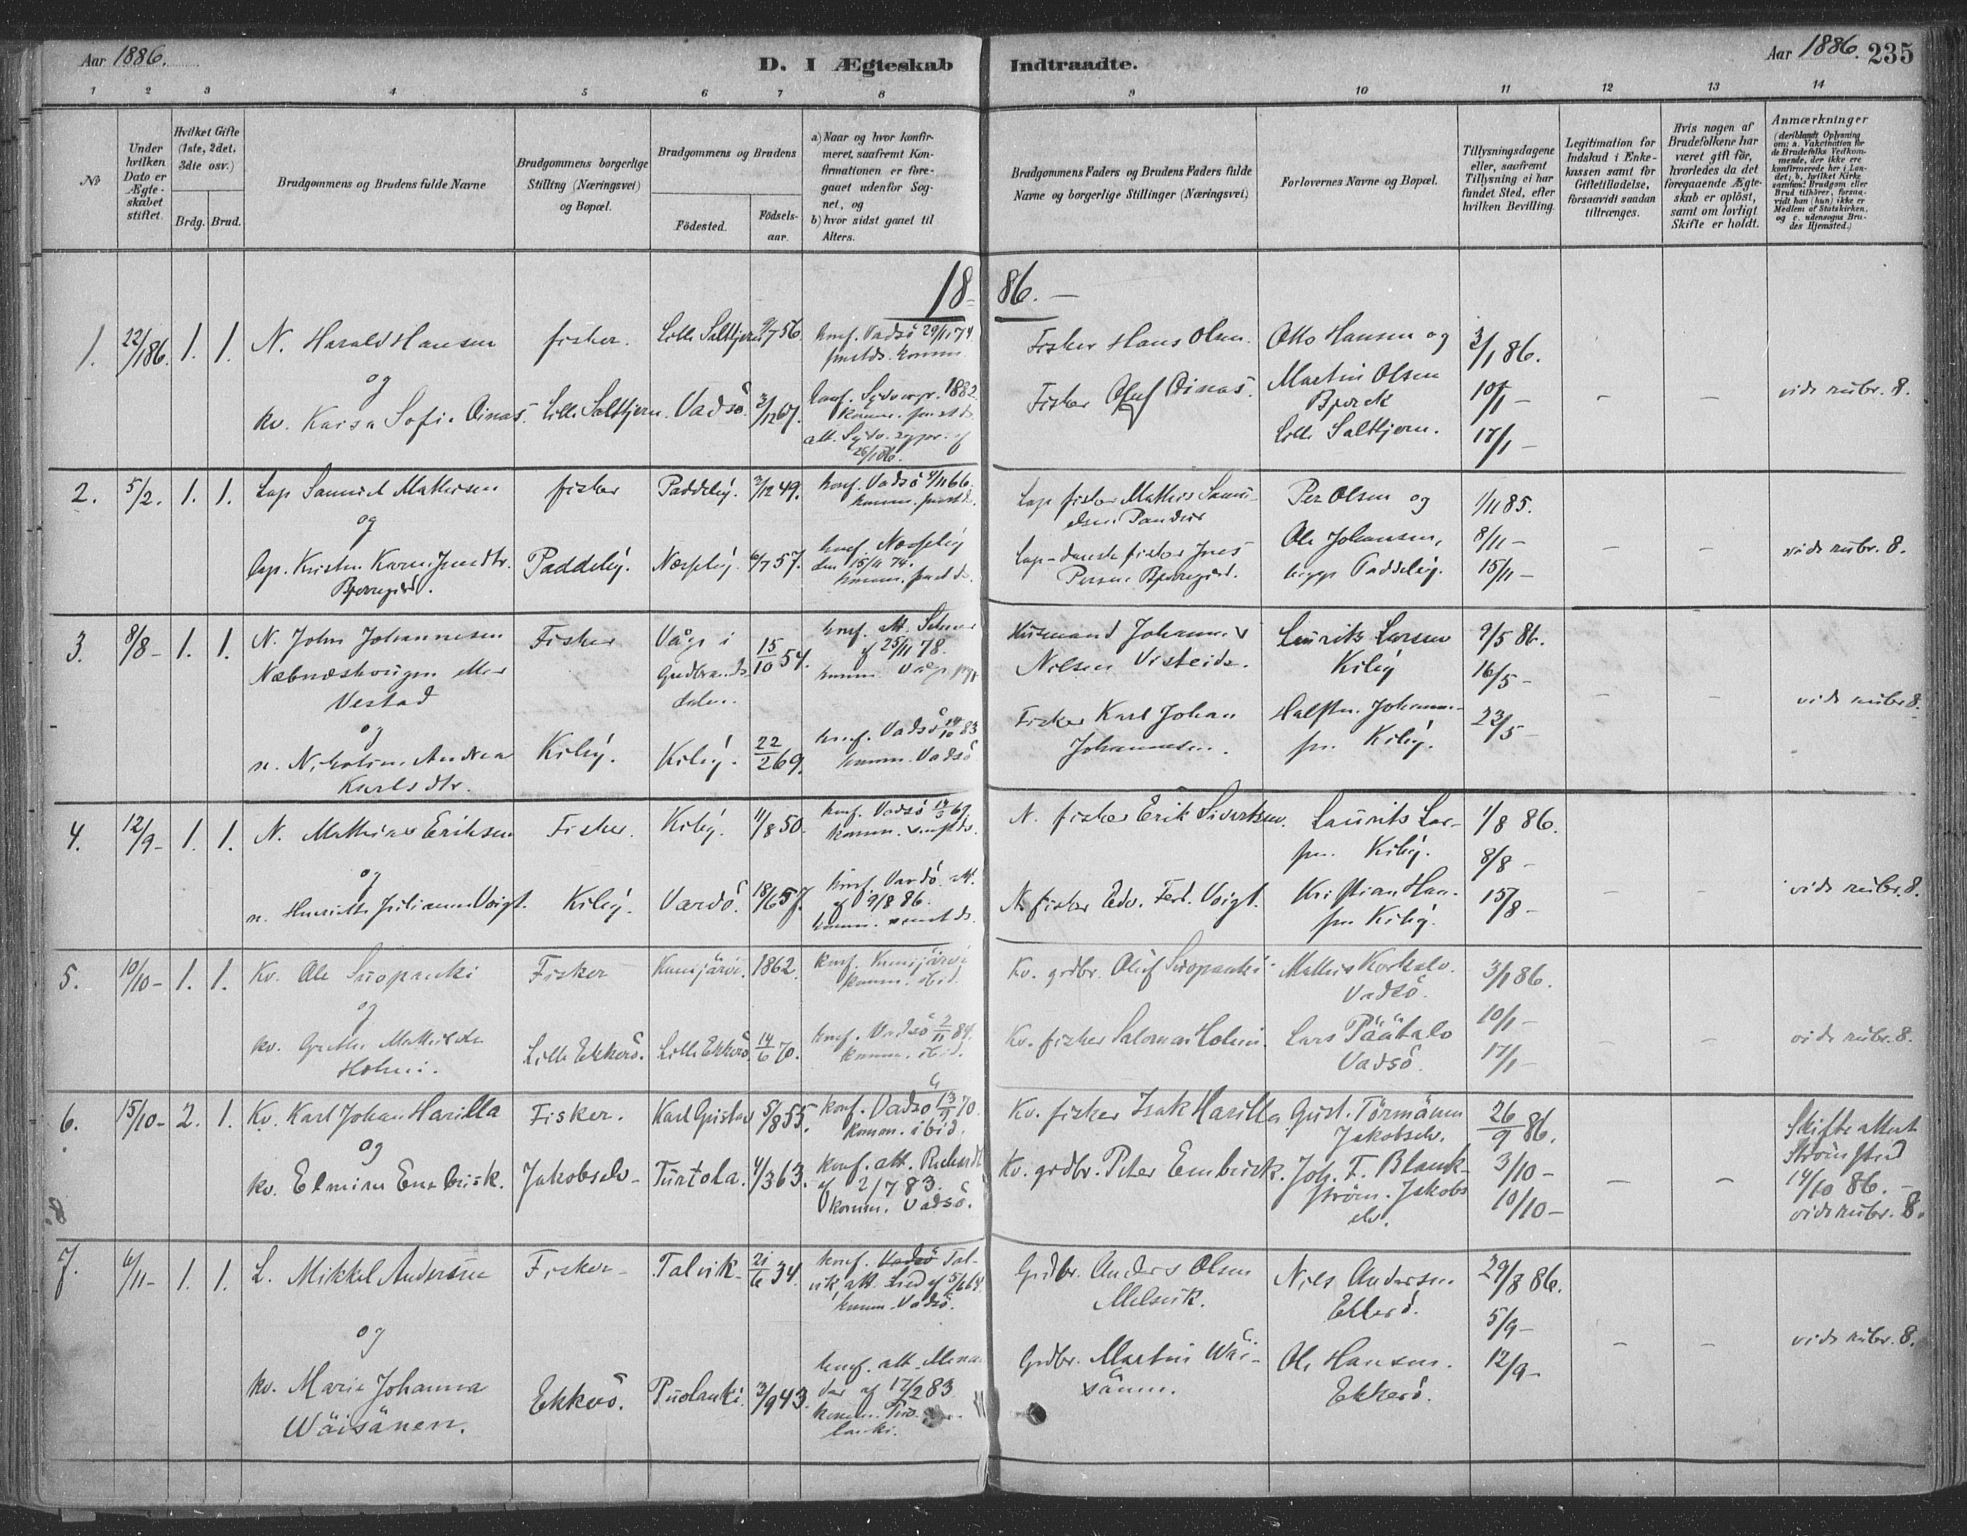 Aar 1886.
D. I Ægteskab Indtraadte.
Aar 1886. 235
1 2 3 4 5 6 7 8 9 10 11 12 13 14
№
Under hvilken Dato er Ægteskabet stiftet.
Hvilket Gifte (1ste, 2det, 3die osv.)
Brdg. Brud.
Brudgommens og Brudens fulde Navne
Brudgommens borgerlige Stilling (Næringsvei) og Bopæl.
Brudgommens og Brudens
Fødested.
Fødselsaar.
a) Naar og hvor konfirmeret, saafremt Konfirmationen er foregaaet udenfor Sognet, og
b) hvor sidst gaaet til Alters.
Brudgommens Faders og Brudens Faders fulde Navne og borgerlige Stillinger (Næringsvei)
Forlovernes Navne og Bopæl.
Tillysningsdagene eller, saafremt Tillysning ei har fundet Sted, efter hvilken Bevilling.
Legitimation for Indskud i Enkekassen samt for Giftetilladelse, forsaavidt saadan tiltrænges.
Hvis nogen af Brudefolkene har været gift før, hvorledes da det foregaaende Ægteskab er opløst, samt om lovligt Skifte er holdt.
Anmærkninger
(deriblandt Oplysning om: a. Vakcination for de Brudefolks Vedkommende, der ikke ere konfirmerede her i Landet; b. hvilket Kirkesamfund Brudgom eller Brud tilhører, forsaavidt han (hun) ikke er Medlem af Statskirken, og c. udensogns Brudes Hjemsted.)
1886. —
1. 22/1 86. 1. 1. N. Harald Hansen fisker. Lille Saltkjern 9/7 56. konf. Vadsö 29/11 74
Fisker Hans Olsen. Otto Hansen og 3/1 86.
og
kv. Kaisa Sofie Oinas. Lille Saltkjern. Vadsö. 3/12 67. konf. Sydvargr. 1882.
Fisker Oluf Oinas. Martin Olsen Bjorck 10/1 — vide rubr. 8.
Lille Saltkjern. 17/1 —
2. 5/2. 1. 1. Lap Samuel Mathisen fisker Paddeby. 2/12 49. konf. Vadsö 4/11 66.
Lap fisker Mathis Samuelsen Per Olsen og 1/11 85.
og
lap. Kristen Karen Jensdtr. Paddeby. Næsseby. 6/7 57. konf. Næsseby den 15/11 74.
Ole Johansen, 8/11 — vide rubr. 8.
begge Paddeby. 15/11 —
3. 8/8 — 1. 1. N. John Johannesen Fisker Våge i 15/10 54. konf. att. 25/11 78.
Gudbrandsdalen.
Vestad
Husmand Johannes Nilsen Laurits Larsen Kiby 9/5 86.
16/5 —
og
n. Nikoline Andrea Karlsdtr. Kiby. Kiby. 22/2 69. konf. Vadsö 14/10 83
komm. Vadsö
Fisker Karl Johan Johannesen. Kiby. 23/5 — vide rubr. 8.
4. 12/9 — 1. 1. N. Mathias Eriksen Fisker. Kiby. 11/8 50. konf. Vadsö
N. fisker Erik Sivertsen. Laurits Larsen Kiby. 1/8 86.
8/8 —
og
n. Henriette Juliane Voigt. Kiby. Vardö. 18/6 57. konf. Vardö. att. af 9/8 86.
N. fisker Edv. Ferd. Voigt. Kristian Hansen Kiby. 15/8 — vide rubr. 8.
5. 10/10 — 1. 1. Kv. Ole Suopanki Fisker Kuusjärvi. 1862. konf. Kuusjärvi
komm. ibid.
Kv. grdbr. Oluf Suopanki Mathis Korkalo. Vadsö. 3/1 86.
og
kv. Grethe Mathilde Holmi. Lille Ekkerö. Lille Ekkerö 14/6 70. konf. Vadsö 2/11 84.
komm. ibid.
Kv. fisker Salomon Holmi. Lars Päätalo Vadsö. 10/1 —
17/1 — vide rubr. 8.
6. 15/10 — 2. 1. Kv. Karl Johan Harilla Fisker. Karl Gustav 5/8 55. konf. Vadsö 13/9 70.
komm. ibid.
Kv. fisker Isak Harilla Gust. Törmänen Jakobselv. 26/9 86.
og
kv. Elmina Enebrisk. Jakobselv — Turtola. 4/3 63. konf. att.
af 2/7 83.
komm. Vadsö.
Kv. grdbr. Peter Enebrisk. Joh. F. Blankström. Jakobselv. 3/10 —
10/10 —
Skifteattest
14/10 86. —
vide rubr. 8.
7. 6/11 — 1. 1. L. Mikkel Andersen Fisker — Talvik — 21/6 34. konf. Vadsö Talvik, att.
komm. Vadsö.
Grdbr. Anders Olsen Melsvik. Nils Andersen Ekkerö. 29/8 86.
5/9 —
og
kv. Marie Johanna Wäisänen. Ekkerö. Pudanki. 3/9 43. konf. att.
af 17/2 83
Grdbr. Martin Wäisänen. Ole Hansen. Ekkerö. 12/9 — vide rubr. 8.